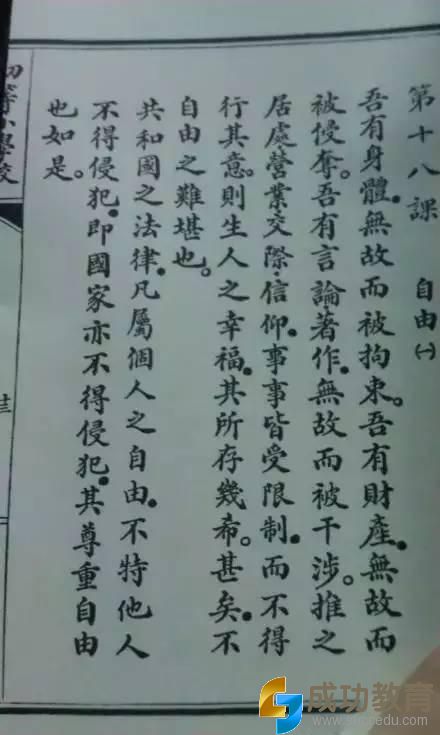 第十八課　自由㈠
吾有身體．無故而被拘束。吾有財產．無故而
被侵奪。吾有言論．著作．無故而被干涉。推之
居處．營業．交際．信仰．事事皆受限制．而不得
行其意。則生人之幸福．其所存幾希。甚矣．不
自由之難堪也。
共和國之法律．凡屬個人之自由．不特他人
不得侵犯．即國家亦不得侵犯．其尊重自由
也如是。
初等小學校
成功教育
www.succedu.com